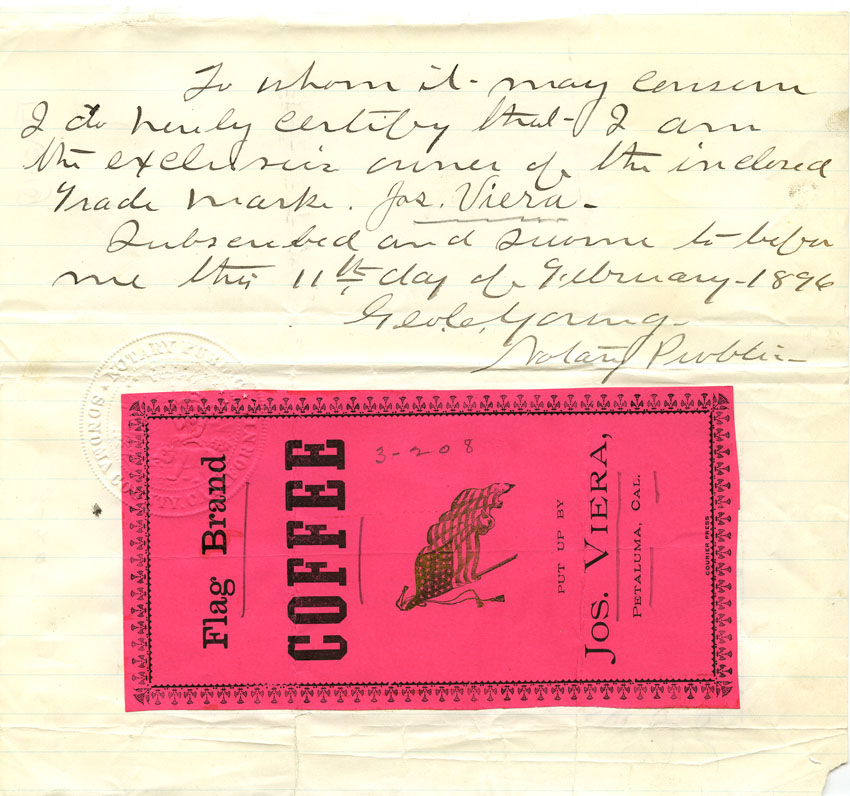 To whom it may consern
I do herely certify that I am
the exclusive owner of the inclosed
Trade Marke. Jos. Viera
Subscribed and sworne to befor
me this 11th day of February 1896
Geo. C. Young
Notary Publi
NOTARY PUBLIC
SONOMA COUNTY, CALIFORNIA
Flag Brand
COFFEE
3-208
PUT UP BY
JOS. VIERA,
PETALUMA, CAL.
COURIER PRESS